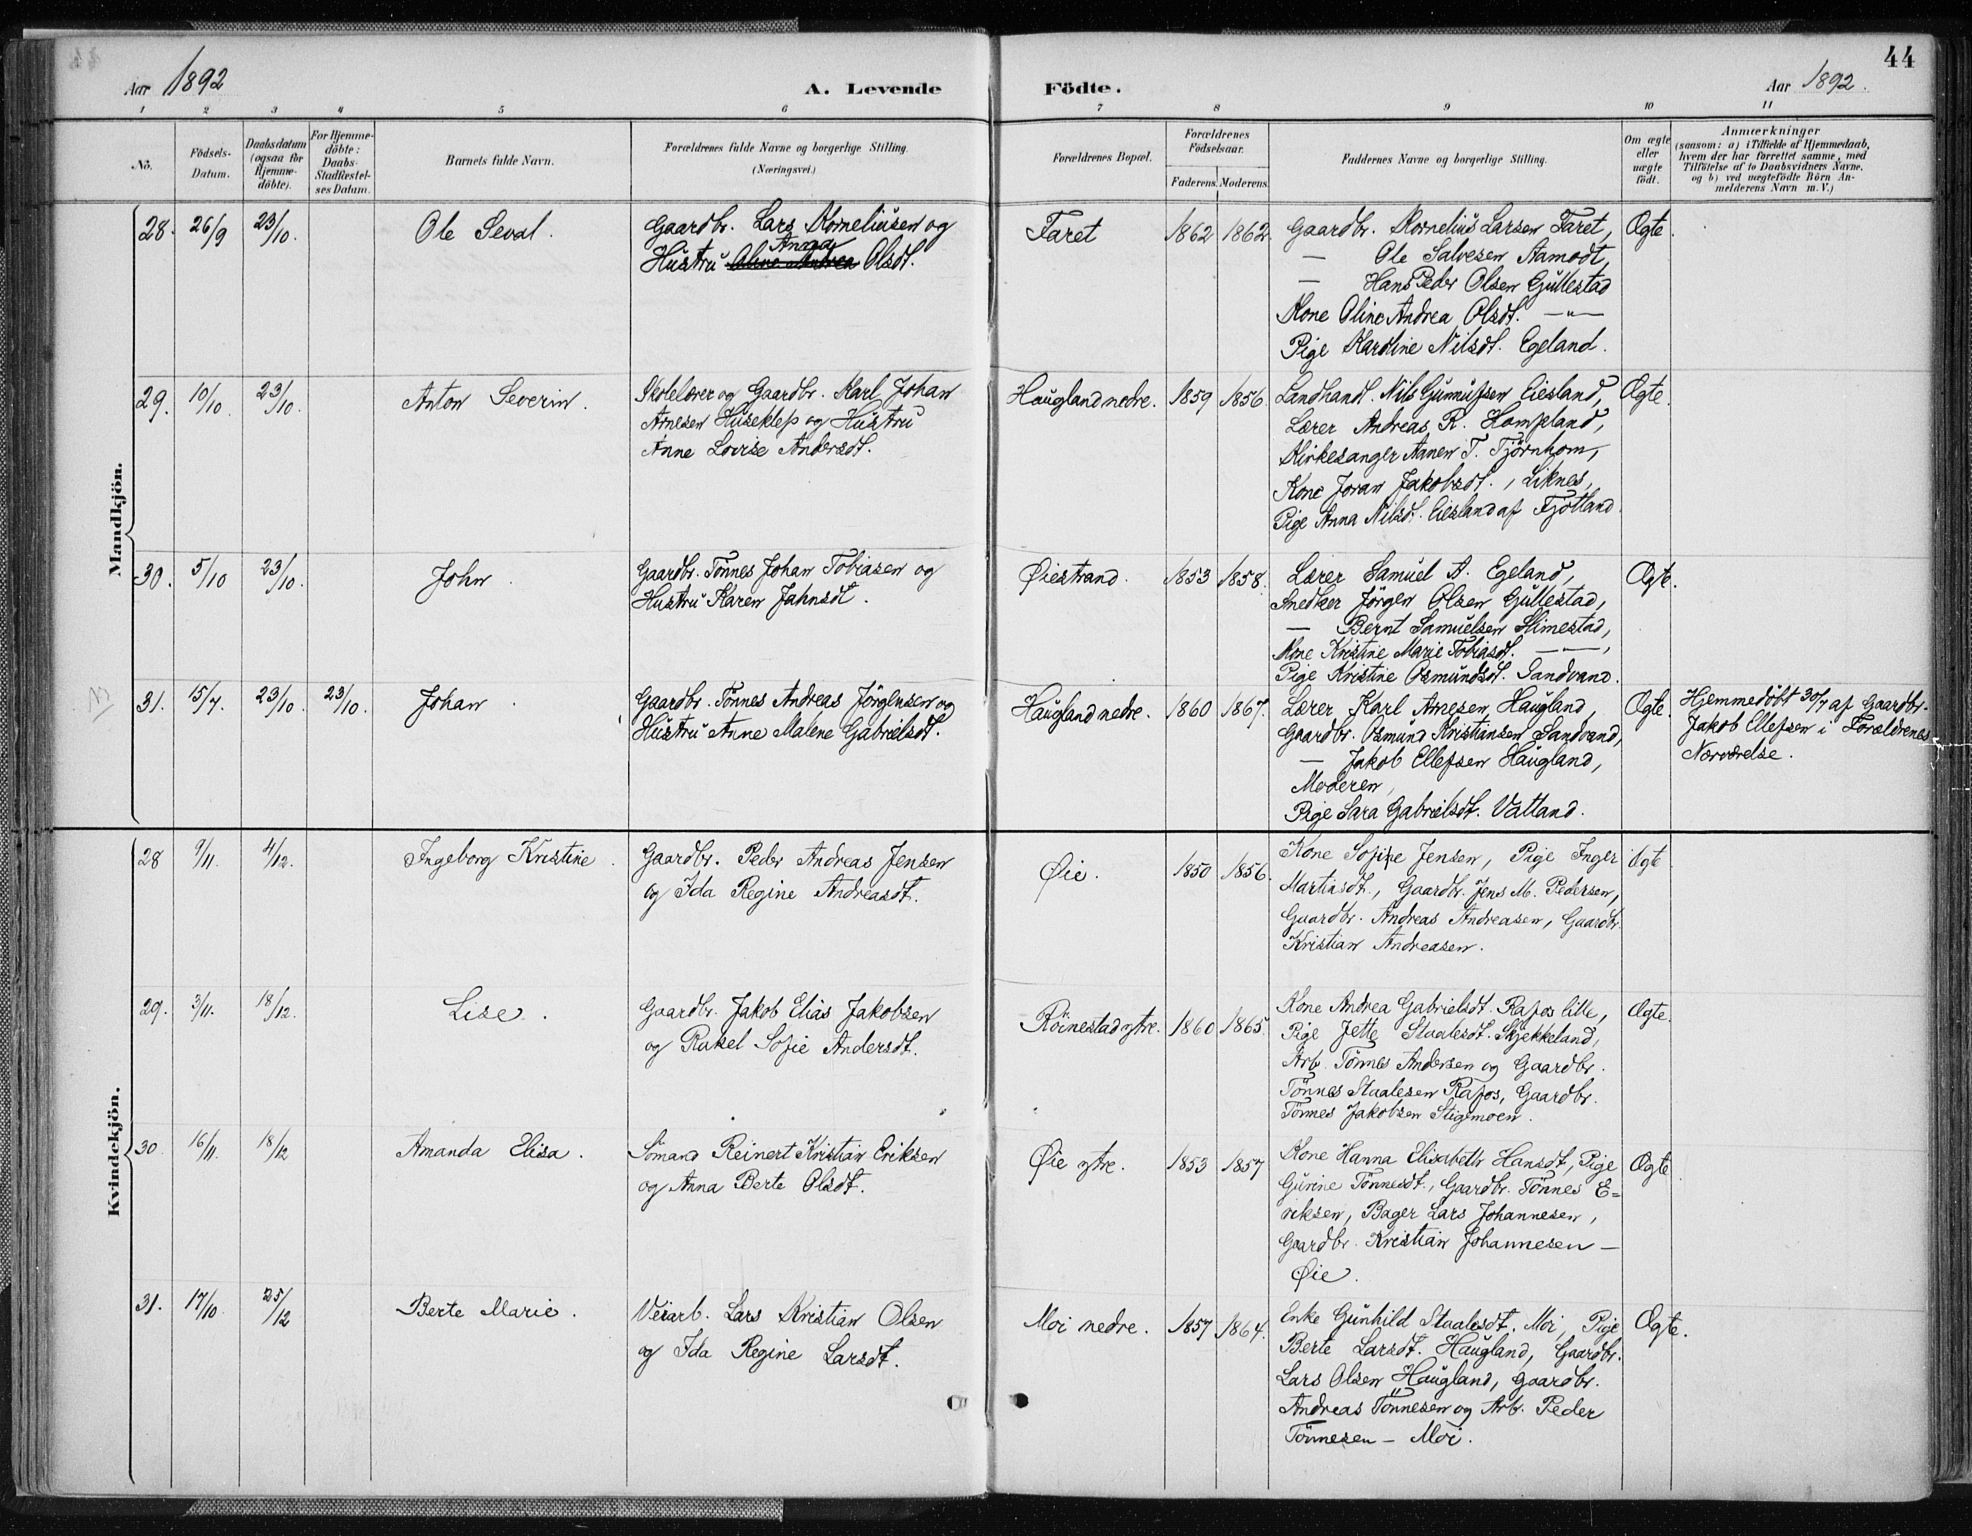 44
Aar 1892 A. Levende Födte. Aar 1892.
1 2 3 4 5 6 7 8 9 10 11
Nö.
Födsels-
Datum.
Daabsdatum
(ogsaa for
Hjemme-
döbte).
For Hjemme-
döbte:
Daabs-
Stadfæstel-
ses Datum.
Barnets fulde Navn.
Forældrenes fulde Navne og borgerlige Stilling.
(Næringsvei.)
Forældrenes Bopæl.
Forældrenes
Födselsaar.
Faderens. Moderens.
Faddernes Navne og borgerlige Stilling.
Om ægte
eller
uægte
født.
Anmærkninger
(saasom: a) i Tilfælde af Hjemmedaab,
hvem der har forrettet samme, med
Tilföielse af to Daabsvidners Navne,
og b) ved uægtefödte Börn An-
melderens Navn m. V.)
Mandkjön.
28. 26/9 23/10. Ole Seval.
Gaardbr. Lars Korneliusen og
Anna
Hustru Oline Andrea Olsdt.
Faret 1862 1862.
Gaardbr. Kornelius Larsen Faret,
— Ole Salvesen Aamodt,
— Hans Peder Olsen Gullestad
Kone Oline Andrea Olsdt. —"—
Pige Karoline Nilsdt. Egeland.
Ægte.
29. 10/10. 23/10. Anton Severin.
Skolelærer og Gaardbr. Karl Johan
Arnesen Huseklep og Hustru
Anne Lovise Andersdt.
Haugland nedre. 1859 1856.
Landhandl. Nils Gunnufsen Eiesland,
Lærer Andreas R. Hompland,
Kirkesanger Aanen T. Tjörnhom,
Kone Joran Jakobsdt., Liknes,
Pige Anna Nilsdt. Eiesland af Fjotland.
Ægte.
30. 5/10 23/10. John.
Gaardbr. Tönnes Johan Tobiasen og
Hustru Karen Jahnsdt.
Øiestrand. 1853 1858.
Lærer Samuel A. Egeland,
Snedker Jörgen Olsen Gullestad,
— Bernt Samuelsen Slimestad,
Kone Kristine Marie Tobiasdt. —"—,
Pige Kristine Osmundsdt. Sandvand.
Ægte.
31. 15/7. 23/10 23/10. Johan.
Gaardbr. Tönnes Andreas Jörgensen og
Hustru Anne Malene Gabrielsdt.
Haugland nedre. 1860 1867.
Lærer Karl Arnesen Haugland,
Gaardbr. Osmund Kristiansen Sandvand,
— Jakob Ellefsen Haugland,
Moderen,
Pige Sara Gabrielsdt. Vatland.
Ægte.
Hjemmedöbt 30/7 af Gaardbr.
Jakob Ellefsen i Forældrenes
Nærværelse.
Kvindekjön.
28 9/11. 4/12. Ingeborg Kristine.
Gaardbr. Peder Andreas Jensen
og Ida Regine Andreasdt.
Øie. 1850 1856.
Kone Sofie Jensen, Pige Inger
Martiasdt., Gaardbr. Jens M. Pedersen,
Gaardbr. Andreas Andreasen, Gaardbr.
Kristian Andreasen.
Ægte
29. 3/11. 18/12. Lise.
Gaardbr. Jakob Elias Jakobsen
og Rakel Sofie Andersdt.
Röinestad ytre. 1860 1865.
Kone Andrea Gabrielsdt. Rafos lille,
Pige Jette Staalesdt. Skjekkeland,
Arb. Tönnes Andersen og Gaardbr.
Tönnes Staalesen Rafos, Gaardbr.
Tönnes Jakobsen Stigemoen.
Ægte.
30. 16/11. 18/12 Amanda Elisa.
Sömand Reinert Kristian Eriksen
og Anna Berte Olsdt.
Øie ytre. 1853 1857
Kone Hanna Elisabeth Hansdt, Pige
Gurine Tönnesdt., Gaardbr. Tönnes E=
riksen, Bager Lars Johannesen,
Gaardbr. Kristian Johannesen —
Øie.
Ægte
31. 17/10. 25/12 Berte Marie.
Veiarb. Lars Kristian Olsen
og Ida Regine Larsdt.
Moi nedre. 1857 1864.
Enke Gunhild Staalesdt. Moi, Pige
Berte Larsdt. Haugland, Gaardbr.
Lars Olsen Haugland, Gaardbr.
Andreas Tönnesen og Arb. Peder
Tönnesen — Moi.
Ægte.